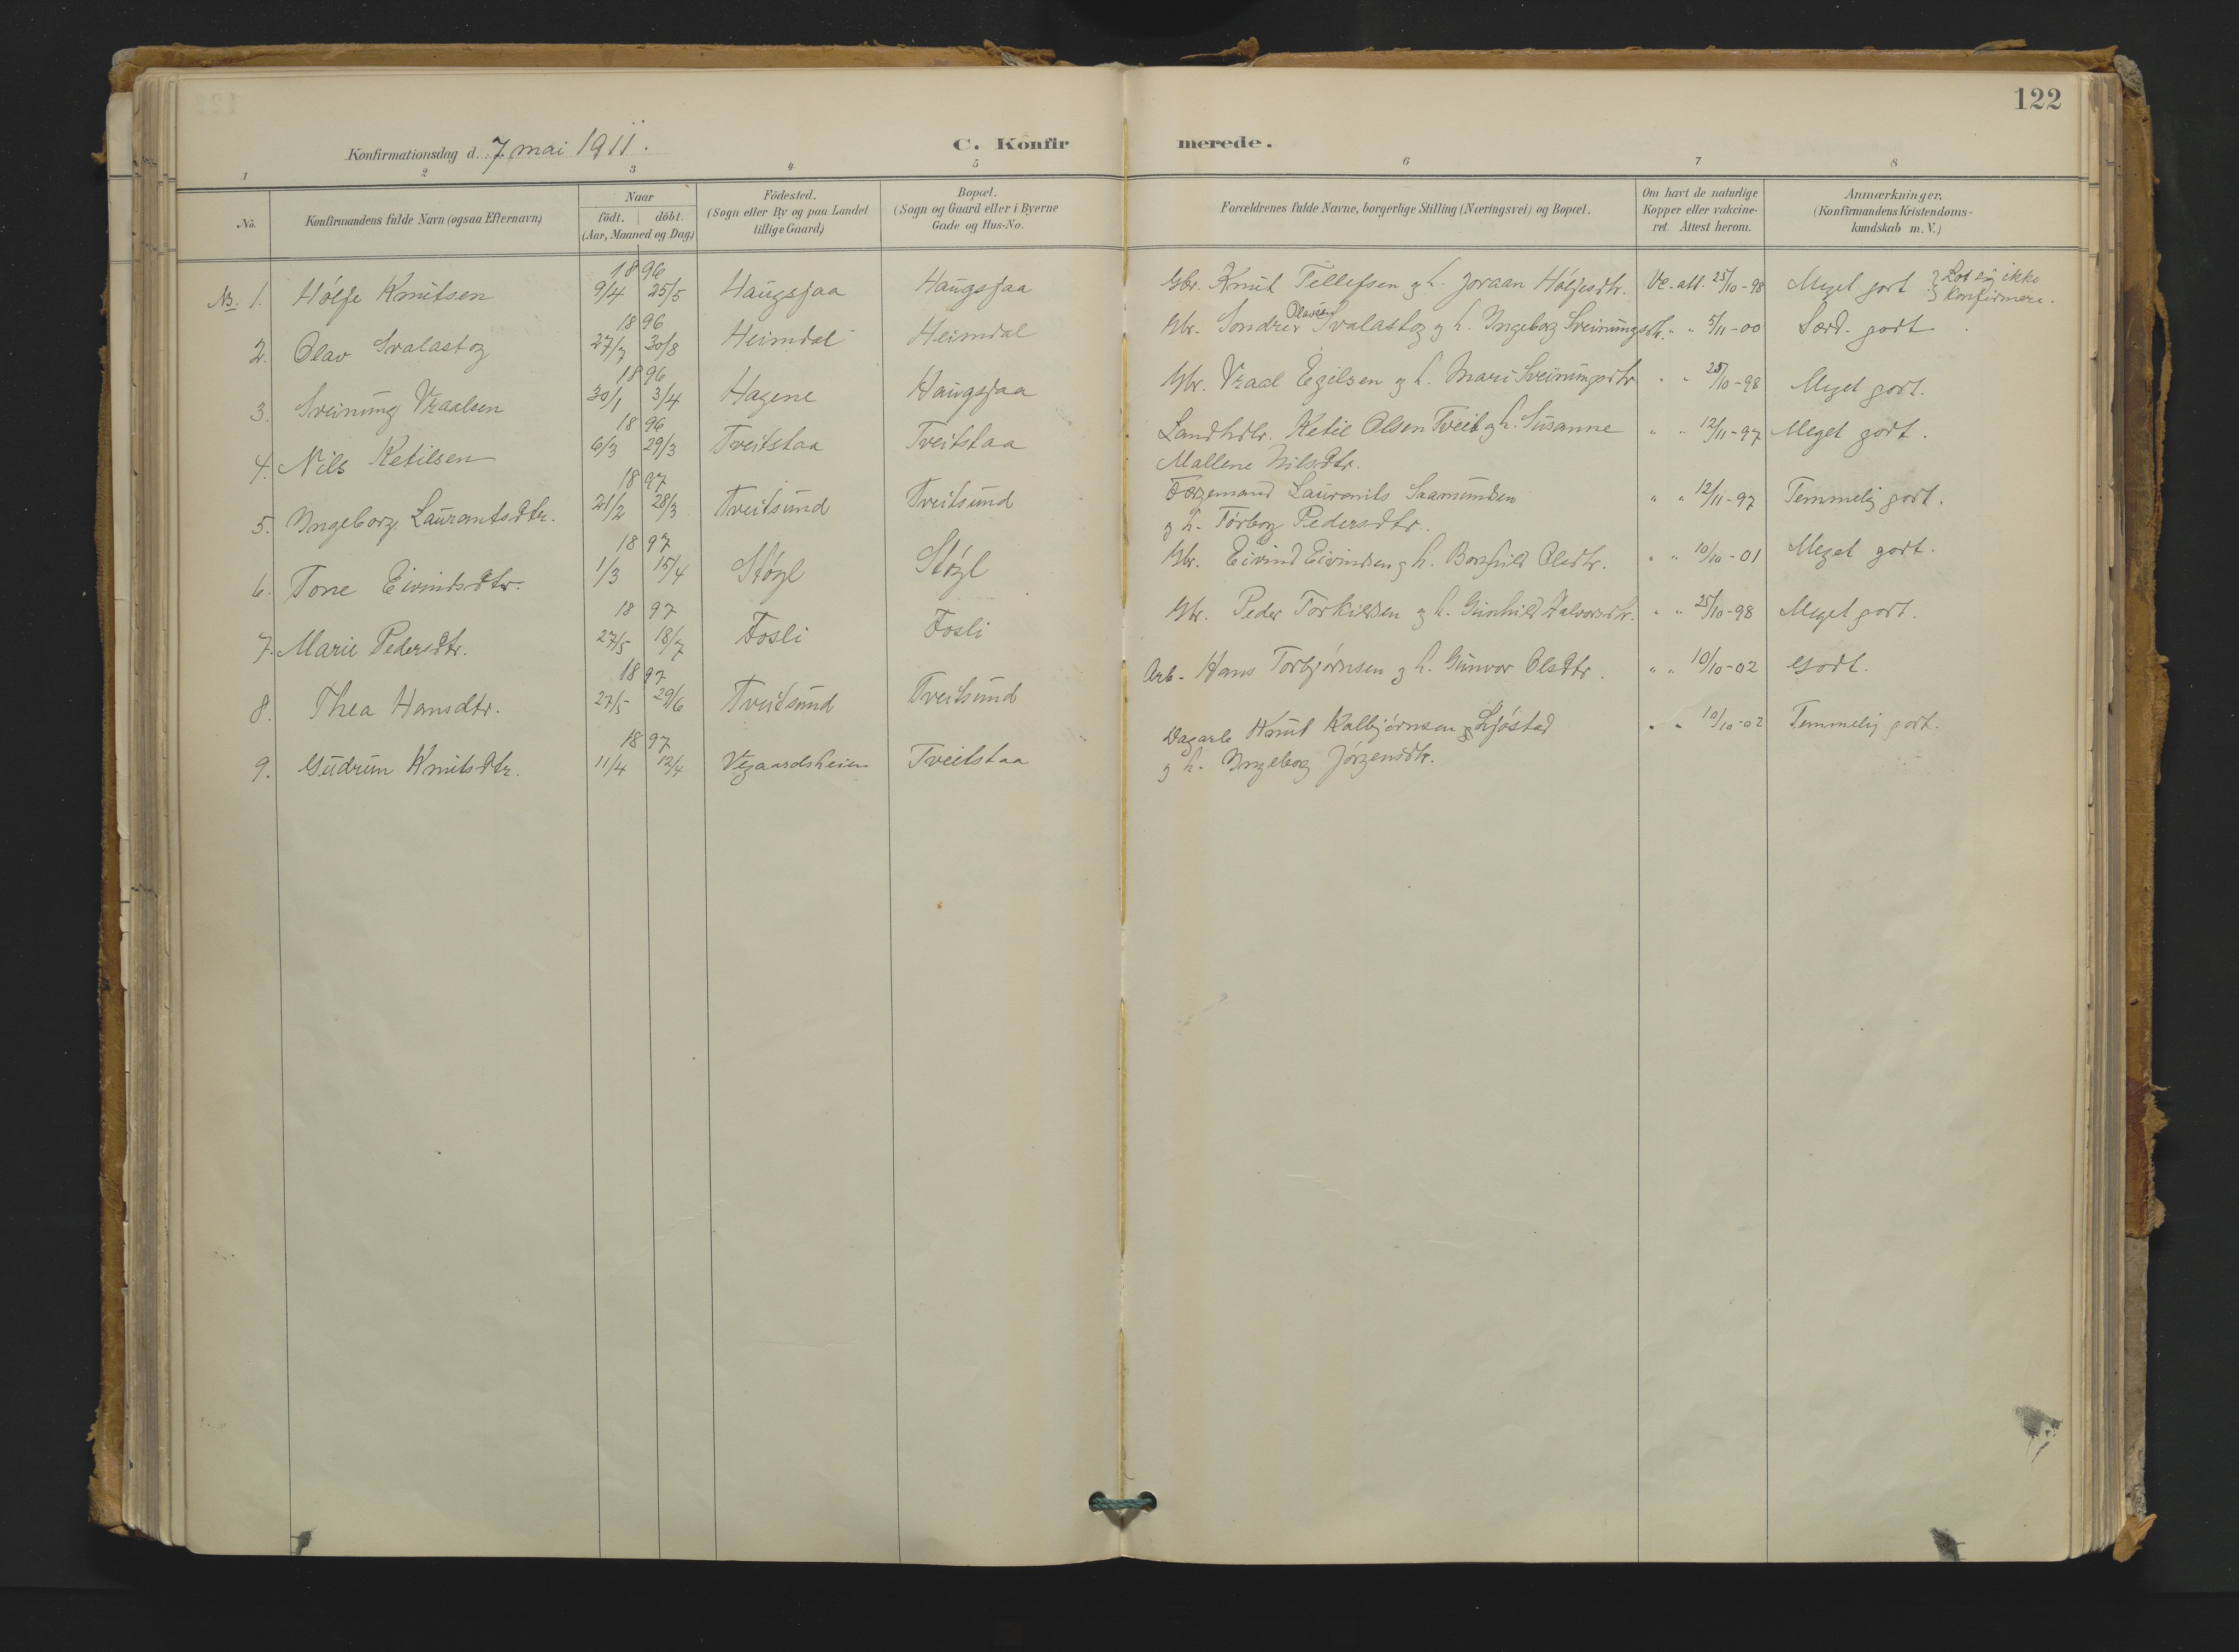 122
Konfirmationsdag d. 7. mai 1911.
C. Konfirmerede.
1 2 3 4 5 6 7 8
No.
Konfirmandens fulde Navn (ogsaa Efternavn)
Naar
födt. döbt.
(Aar, Maaned og Dag)
Födested.
(Sogn eller By og paa Landet
tillige Gaard)
Bopæl.
(Sogn og Gaard eller i Byerne
Gade og Hus-No.
Forældrenes fulde Navne, borgerlige Stilling (Næringsvei) og Bopæl.
Om havt de naturlige
Kopper eller vakcine-
ret. Attest herom.
Anmærkninger,
(Konfirmandens Kristendoms-
kundskab m. V.)
1896
NB. 1. Hølje Knutsen 9/4 25/5 Haugsjaa Haugsjaa Gbr. Knut Tellefsen og h. Joraan Høljesdtr. Vc. att. 25/10-98 Meget godt } Lot sig ikke
konfirmere.
1896
2. Olav Svalastog 27/7 30/8 Heimdal Heimdal Gbr. Sondre Olavsen Svalastog og h. Ingeborg Sveinungsdtr. " " 5/11-00 Særd. godt.
1896
3. Sveinung Vraalsen 30/1 3/4 Hagene Haugsjaa Gbr. Vraal Egilsen og h. Mari Sveinungsdtr " " 25/10-98 Meget godt.
1896
4. Nils Ketilsen 6/3 29/3 Tveitstaa Tveitstaa Landhdlr. Ketil Olsen Tveit og h. Susanne " " 12/11-97 Meget godt.
Mallene Nilsdtr.
1897
5. Ingeborg Laurantsdtr. 21/2 28/3 Tveitsund Tveitsund Færgemand Laurants Saamundsen " " 12/11-97 Temmelig godt.
og h. Torborg Pedersdtr.
1897
6. Tone Eivindsdtr. 1/3 15/4 Støyl Støyl Gbr. Eivind Eivindsen og h. Borghild Olsdtr. " " 10/10-01 Meget godt.
1897
7. Marie Pedersdtr. 27/5 18/7 Fosli Fosli Gbr. Peder Torkildsen og h. Gunhild Halvorsdtr. " " 25/10-98 Meget godt.
1897
8. Thea Hansdtr. 27/5 29/6 Tveitsund Tveitsund Arb. Hans Torbjørnsen og h. Gunvor Olsdtr. " " 10/10-02 Godt.
1897
9. Gudrun Knutsdtr. 11/4 12/4 Vegaardsheien Tveitstaa Dagarb Knut Kalbjørnsen Ljøstad " " 10/10-02 Temmelig godt.
og h. Ingeborg Jørgensdtr.